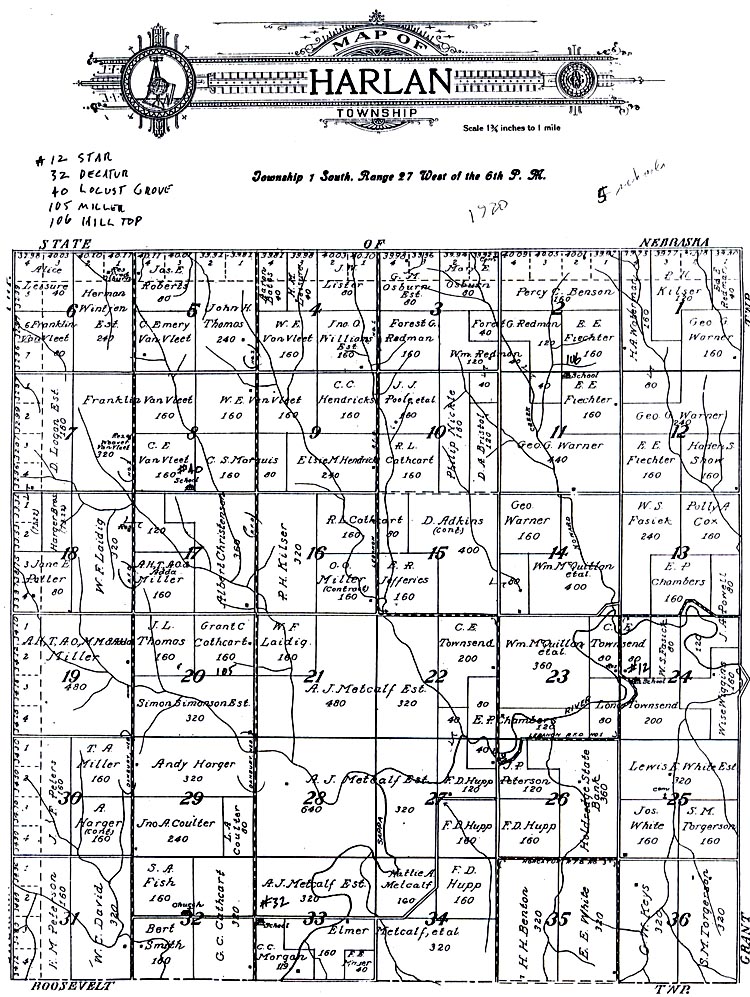 MAP OF
HARLAN
TOWNSHIP
Scale 1¾ inches to 1 mile
Township 1 South, Range 27 West of the 6th P. M.
#12 STAR
32 DECATUR
40 LOCUST GROVE
105 MILLER
106 HILL TOP
1920
STATE OF NEBRASKA
Alice Leisure 40
6
Herman Wintjen Est. 240
Franklin VanVleet 80
Jas. E. Roberts 80
5
John H. Thomas 240
C. Emery VanVleet 160
4
J.W. Lister 80
W. E. VanVleet 160
Jno. O. Williams Est 160
G. M. Osburn Est. 80
Mary E. Osburn 80
3
Forest G. Redman 160
Wm. Redmon 120
40
Percy C. Benson 160
2
Forest G. Redman 120
E. E. Fiechter 160
106
School
P. H. Kilser
1
Geo G. Warner 160
80
D. Logan Est 160
7
Franklin VanVleet
320
W. E. VanVleet
160
160
8
C. E. VanVleet 160
#40
School
C. S. Marquis 80
C. C. Hendricks 160
9
Elsie M Hendricks 240
J. J. Poole, etal 160
10
R. L. Cathcart 160
Philip Mickle 160
D. A. Bristol
40
E. E. Fiechter 160
11
Geo G. Warner 440
Geo. G. Warner 240
12
E. E. Fiechter 160
Haden S. Show 160
Harger Bros.
18
W. F. Laidig 320
Jane E. Potter 80
120
17
A.H.T.A.O.& Adda Miller 160
Albert Christensen 360
P. H. Kilser 320
16
R. L. Cathcart 160
80
O. O. Miller (Contract) 160
E. R. Jefferies 160
D. Adkins (Cont) 400
15
80
Geo. Warner 160
14
Wm McQuillon etal. 400
W. S. Fasick 240
Polly A Cox 160
13
E. P Chambers 160
J. A. Powell 80
A.H.T.A.O., M.M & Adda Miller
19
480
J. L. Thomas 80
Grant C Cathcart 160
20
105
Simon Simonson Est. 320
W. F. Laidig. 160
21
A. J. Metcalf Est.
480
320
C. E. Townsend 200
22
80
40
E. P. Chambers 120
Wm. McQuillon etal 360
23
C. E. Townsend 80
RIVER
80
LEBANON R.F.D. NO. 1
W.S. Fasick 80
120
#12
School
24
Lon Townsend 200
Wise Wiggins 160
J. F. Peters 160
30
T. A Miller 160
A. Harger (Cont) 160
Andy Harger 320
29
Jno. A. Coulter 240
L. A Coulter 80
A. J. Metcalf Est.
28
640
320
SAPPA
40
F. D. Hupp 120
27
F. D. Hupp 160
J. P. Peterson 120
26
F. D. Hupp 160
Holdrege State Bank 360
Lewis F White Est 320
25
Jos. White 160
S. M. Torgerson 160
F. M Peterson 160
31
W. C. David 320
S. A. Fish 160
Church
32
Bert Smith 160
G. C. Cathcart 320
A. J. Metcalf Est.
#32
School
33
C. C. Morgan 119
Elmer Metcalf, etal
160
320
40
Hattie A Metcalf 160
F. D. Hupp 160
34
H. H. Benton 320
35
E. E. White 320
C. W. Keys 320
36
S. M. Torgerson 320
GRANT
ROOSEVELT TWP.